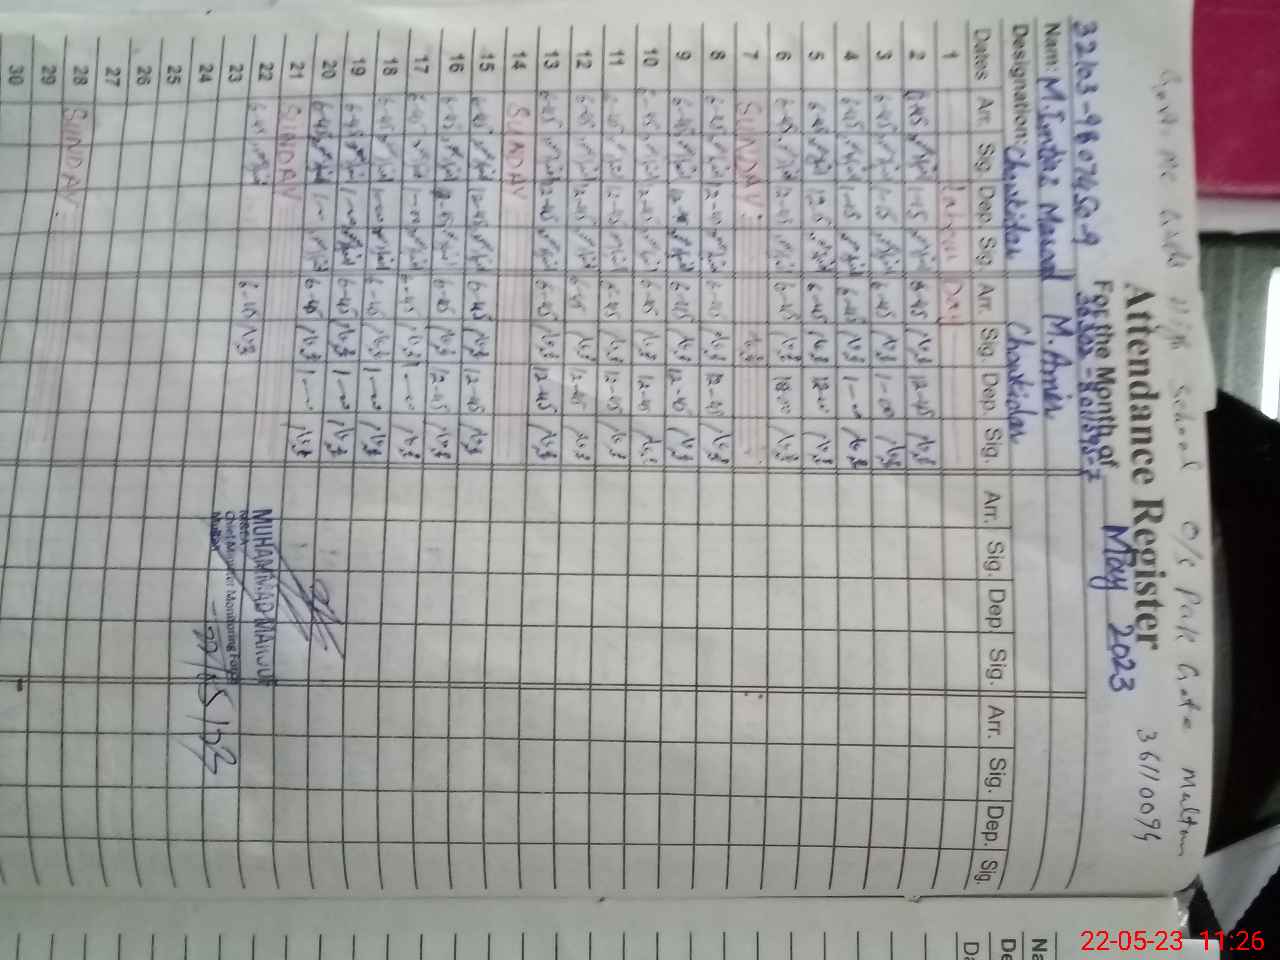 Govt. MC Girls High School O/S Pak Gate Multan
36110094
Attendance Register
For the Month of May 2023
32103-9607450-9
Nam: M. Imtiaz Masood M. Amir
Designation: Chowkidar Chowkidar
Dates Arr. Sig. Dep. Sig. Arr. Sig. Dep. Sig. Arr. Sig. Dep. Sig. Arr. Sig. Dep. Sig.
1 Labour Day
2 6-45 1-15 6-45 12-45
3 6-45 1-15 6-45 1-00
4 6-45 1-15 6-45 1-00
5 6-45 6-45 12-00
6 6-45 12-45 6-45
7 SUNDAY
8 6-45 12-45 6-45 12-45
9 6-45 12-45 6-45 12-45
10 6-45 12-45 6-45 12-45
11 6-45 12-45 6-45 12-45
12 6-45 12-45 6-45 12-45
13 6-45 12-45 6-45 12-45
14 SUNDAY
15 6-45 12-45 6-45 12-45
16 6-45 12-45 6-45 12-45
17 6-45 1-00 6-45 1-00
18 6-45 1-00 6-45 1-00
19 6-45 1-00 6-45 1-00
20 6-45 1-00 6-45 1-00
21 SUNDAY
22 6-45 6-45
23
24
25
26
27
28 SUNDAY
29
30
MUHAMMAD MAROOF
MEA
Chief Minister Monitoring Force
Multan
22/05/23
22-05-23 11:26